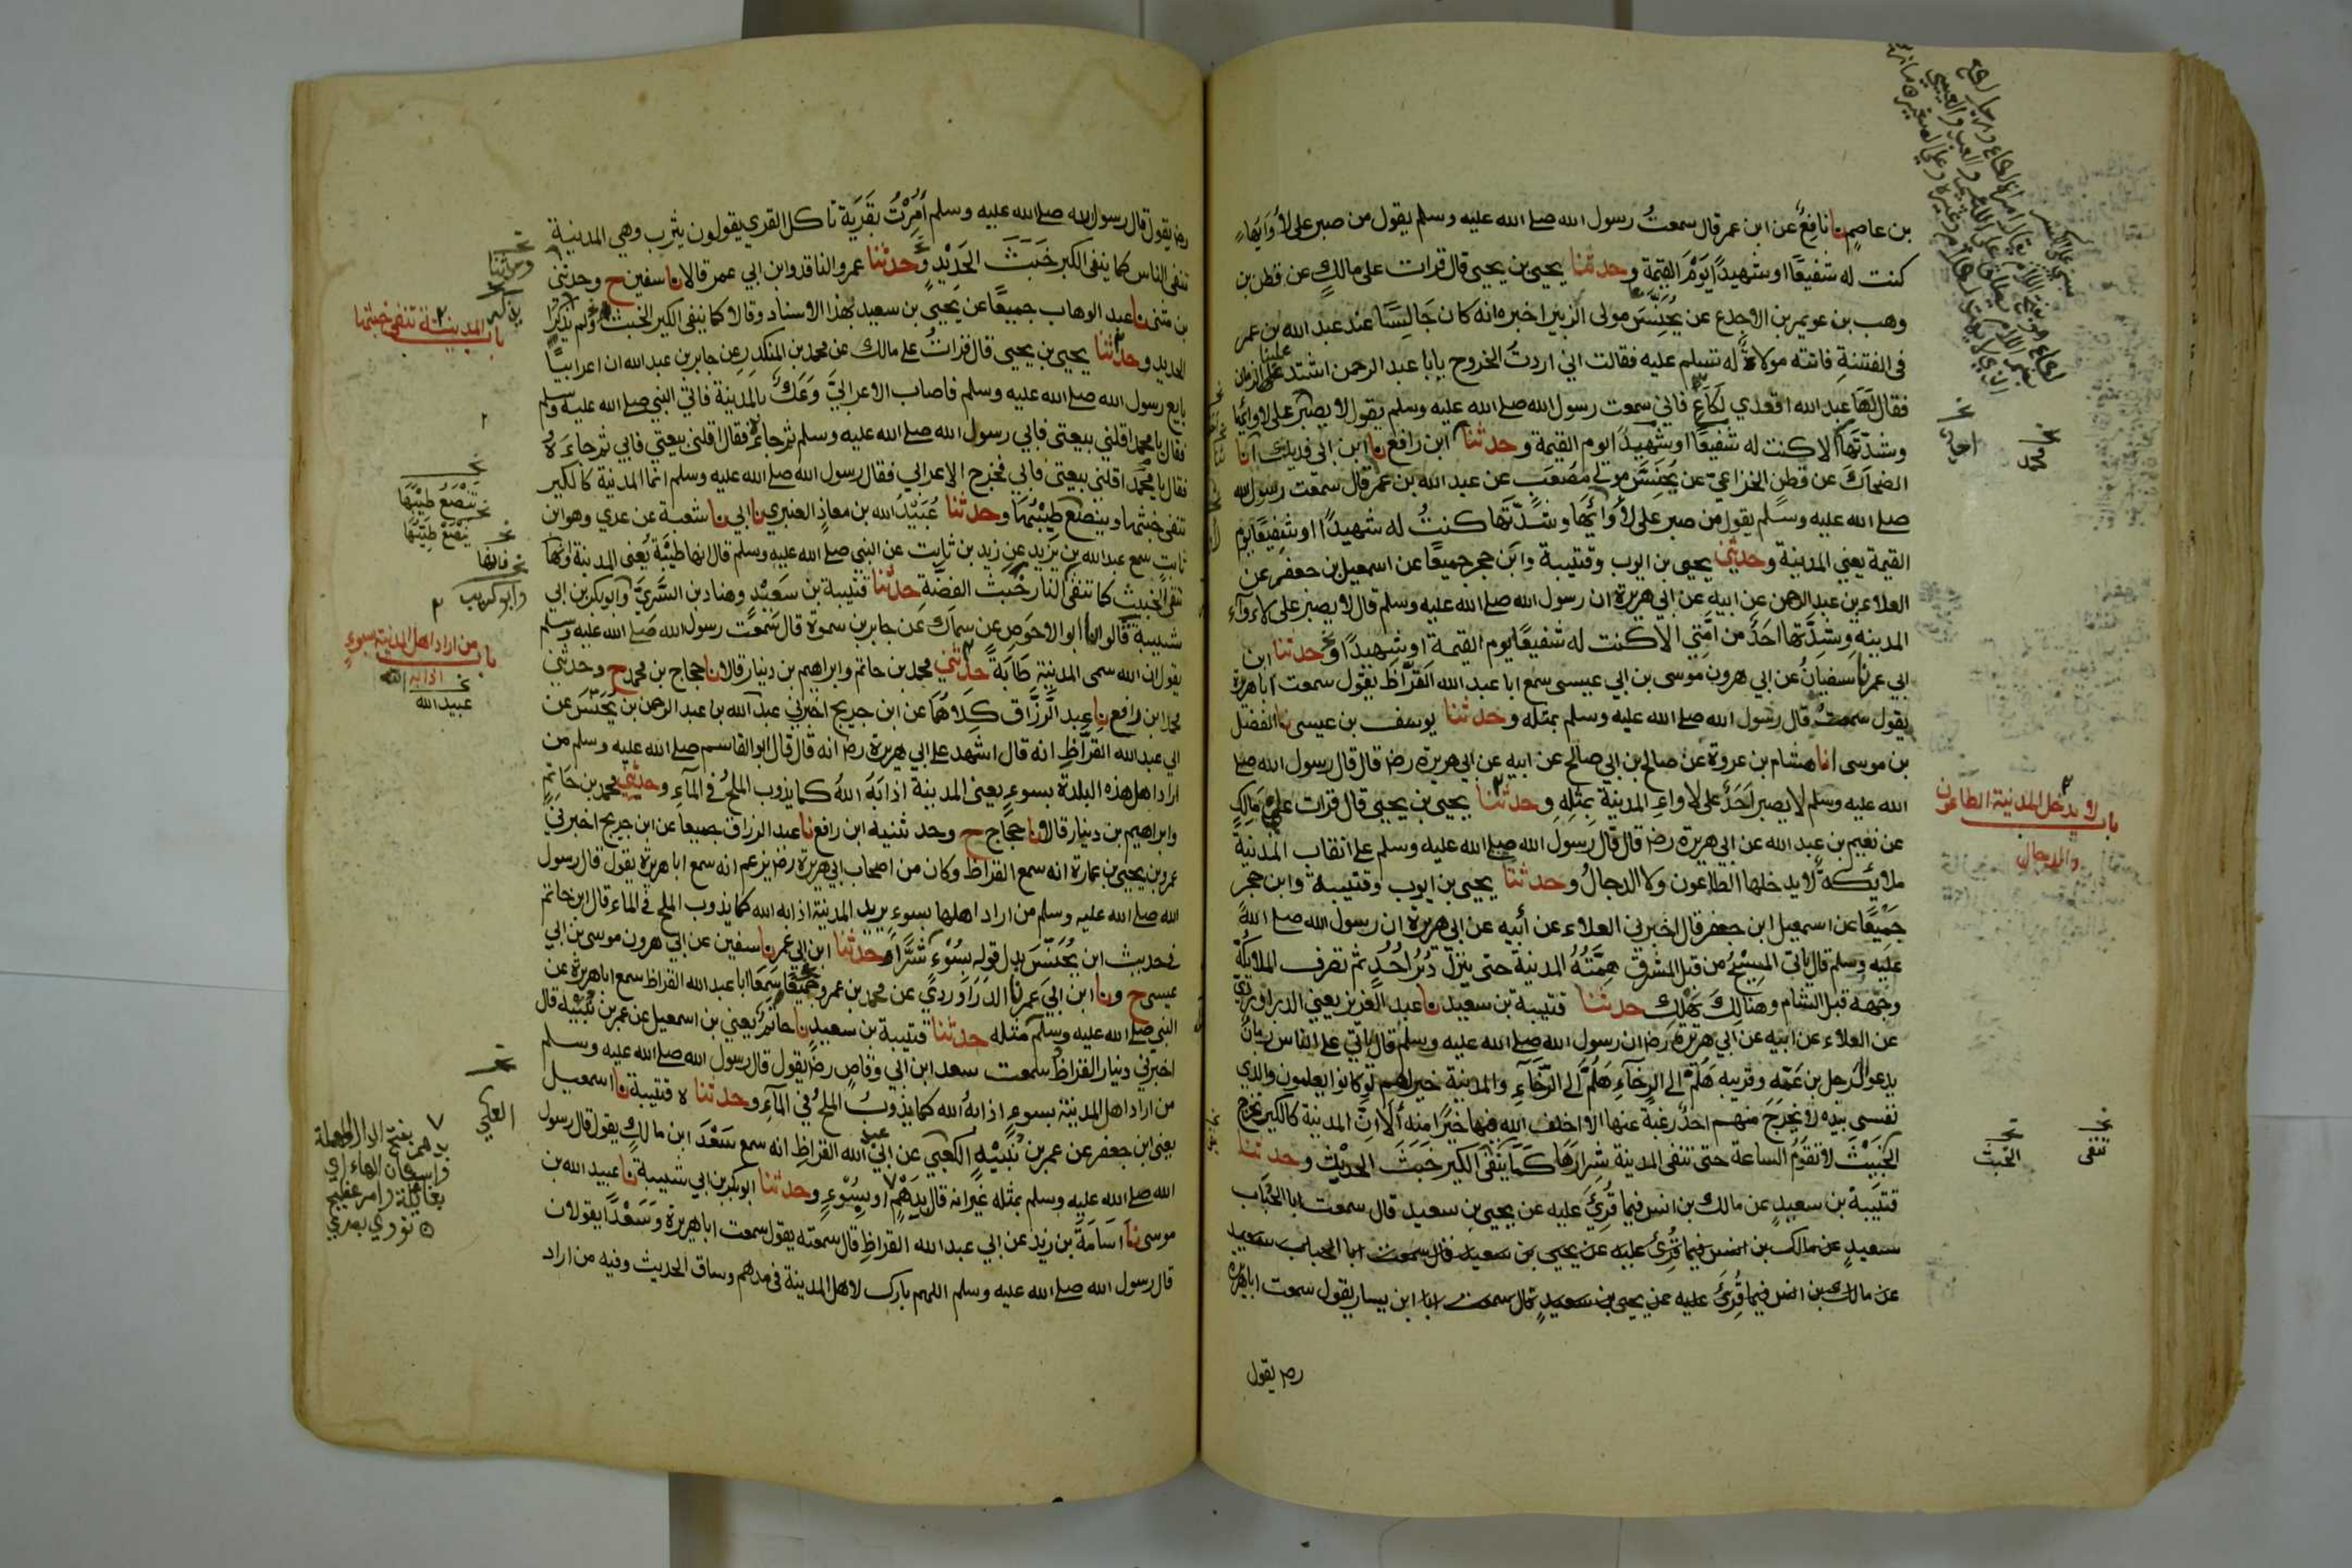 بن عاصم نا نافع عن ابن عمر قال سمعت رسول الله صلے الله عليه وسلم يقول من صبر على لأوائها
كنت له شفيعًا او شهيدًا يوم القيمة وحدثنا يحيى بن يحيى قال قرات على مالك عن قطن بن
وهب بن عويمر بن الاجدع عن يُحَنَّس مولى الزبير اخبره انه كان جالسًا عند عبد الله بن عمر
فى الفتنة فاتته مولاة له تسلم عليه فقالت اني اردت الخروج يابا عبد الرحمن اشتد علينا الزمان
فقال لها عبد الله اقعدي لكاع فاني سمعت رسول الله صلے الله عليه وسلم يقول لا يصبر على لاوائها
وشدتها الا كنت له شفيعًا او شهيدًا يوم القيمة وحدثنا ابن رافع نا ابن ابى فديك انا
الضحاك عن قطن الخزاعي عن يُحَنَّس مولى مصعب عن عبد الله بن عمر قال سمعت رسول الله
صلے الله عليه وسلم يقول من صبر على لأوائها وشدّتها كنتُ له شهيدًا او شفيعًا يوم
القيمة يعني المدينة وحدثني يحيى بن ايوب وقتيبة وابن حجر جميعًا عن اسمعيل بن جعفر عن
العلاء بن عبد الرحمن عن ابيه عن ابي هريرة ان رسول الله صلے الله عليه وسلم قال لا يصبر على لاءواء
المدينة وشِدَّتها احَدٌ من امّتي الا كنت له شفيعًا يوم القيمة او شهيدًا وحدثنا ابن
ابي عمر نا سفيانُ عن ابي هرون موسى بن ابي عيسى سمع ابا عبد الله القَرَّاظ يقول سمعت اباهريرة
يقول قال رسول الله صلے الله عليه وسلم بمثله وحدثنا يوسف بن عيسى نا الفضل
بن موسى انا هشام بن عروة عن صالح بن ابي صالح عن ابيه عن ابي هريرة رضـ قال قال رسول الله صلے
الله عليه وسلم لا يصبر احَدٌ على لاواءِ المدينة بمثلِهِ وحدثنا يحيى بن يحيى قال قرات على مَالِكٍ
عن نعيم بن عبد الله عن ابي هريرة رضـ قال قال رسول الله صلے الله عليه وسلم على انقاب المدينة
ملائكة لا يدخلها الطاعون ولا الدجالُ وحدثنا يحيى بن ايوب وقتيبة وابن حجر
جميعًا عن اسمعيل ابن جعفر قال اخبرني العلاء عن أبيه عن ابي هريرة ان رسول الله صلے الله
عليه وسلم قال ياتي المسيح من قبل المشرق هِمّته المدينة حتى ينزل دُبُر اُحُدٍ ثم تصرف الملائكة
وجهه قبل الشام وهنالِكَ يهلِك حدثنا قتيبة بن سعيد نا عبد العزيز يعني الدراوردي
عن العلاء عن ابيه عن ابي هريرة رضـ ان رسول الله صلے الله عليه وسلم قال ياتي على الناس زمان
يدعو الرجل بن عَمّه وقريبه هَلُمَّ الى الرخاءِ هَلُمَّ الى الرّخاءِ والمدينة خير لهم لو كانوا يعلمون والذي
نفسى بيده لا يخرجَ منهم احدٌ رغبةً عنها الا اخلف الله فيها خيرًا منه ألا اِنّ المدينة كالكير تخرج
الخَبِيْثَ لا تقومُ الساعة حتى تنفى المدينة شِرارَهَا كَمَا ينفى الكير خَبَثَ الحديْد وحدثنا
قتيبة بن سعيدٍ عن مالك بن انس فيما قُرِئَ عليه عن يحيى بن سعيد قال سمعت ابا الحُبَاب
سعيدٍ عن مالك بن انس فيما قُرِئَ عليه عن يحيى بن سعيد قال سمعت ابا الحباب سعيد
عن مالك بن انس فيما قُرِئَ عليه عن يحيى بن سعيدٍ قال سمعت ابا ابن يسار يقول سمعت اباهريرة
رضـ يقول
باب لا يدخل المدينة الطاعون
والدجال
نخـ محمد
نخـ اخبرنا
نخـ تنفى
نخـ الخبث
رضـ يقول قال رسول الله صلے الله عليه وسلم أُمِرْتُ بقَريَة تاكل القرى يقولون يثرب وهي المدينة
تنفى الناس كما ينفى الكير خَبَثَ الحَدِيْدِ وحدثنا عمرو الناقد وابن ابي عمر قالا نا سفين ح وحدثنى
بن مثنى نا عبد الوهاب جميعًا عن يحيى بن سعيد بهذا الاسناد وقالا كما ينفى الكير الخبث ولم يذكرا
الحديد وحدثنا يحيى بن يحيى قال قراتُ على مالك عن محمد بن المنكدر عن جابر بن عبد الله ان اعرابيًا
بايع رسول الله صلے الله عليه وسلم فاصاب الاعرابيَّ وَعَكٌ بالمدينة فاتي النبي صلے الله عليه وسلم
فقال يا محمد اقلني بيعتى فابي رسول الله صلے الله عليه وسلم ثم جاءه فقال اقلنى بيعتي فابي ثم جاءه
فقال يا محمد اقلني بيعتى فابي فخرج الاعرابي فقال رسول الله صلے الله عليه وسلم انما المدينة كالكير
تنفى خبثها وينصع طيبها وحدثنا عُبَيْدُ الله بن معاذ العنبري نا ابي نا شعبة عن عدي وهو ابن
ثابت سمع عبد الله بن يزيد عن زيد بن ثابت عن النبي صلے الله عليه وسلم قال انها طيبة يعنى المدينة وانها
تنفى الخبيث كما تنفى النار خبث الفضة حدثنا قتيبة بن سعيد وهناد بن السَّرِيّ وابو بكر بن ابي
شيبة قالوا نا ابو الاحوص عن سماك عن جابر بن سمرة قال سمعت رسول الله صلے الله عليه وسلم
يقول ان الله سمى المدينة طابَةً حدثني محمد بن حاتم وابراهيم بن دينار قالا نا حجاج بن محمد ح وحدثني
محمد ابن رافع نا عبد الرزاق كِلاهُمَا عن ابن جريج اخبرني عبد الله بن عبد الرحمن بن يُحَنَّس عن
ابي عبد الله القرَّاظِ انه قال اشهد على ابي هريرة رضـ انه قال قال ابو القاسم صلے الله عليه وسلم من
اراد اهل هذه البلدة بسوءٍ يعني المدينة اذابَهُ اللهُ كما يذوب الملحُ في الماءِ وحدثني محمد بن حَاتم
وابراهيم بن دينار قالا نا حجّاج ح وحدثنيه ابن رافع نا عبد الرزاق جميعا عن ابن جريج اخبرني
عمرو بن يحيى بن عمارة انه سمع القراظ وكان من اصحاب ابي هريرة رضـ يزعم انه سمع ابا هريرة يقول قال رسول
الله صلے الله عليه وسلم من اراد اهلها بسوءٍ يريد المدينة اذابه الله كما يذوب الملح في الماء قال ابن حاتم
فى حديث ابن يُحَنَّس بدل قوله بسُوْءٍ شَرًّا وحدثنا ابن ابي عمر نا سفين عن ابي هرون موسى بن ابي
عيسى ح ونا ابن ابي عمر نا الدَرَاوردي عن محمد بن عمرو جميعًا سمعَا ابا عبد الله القراظ سمع اباهريرة عن
النبي صلے الله عليه وسلم مثله حدثنا قتيبة بن سعيدٍ نا حاتم يعني بن اسمعيل عن عمر بن نُبَيْه قال
اخبرني دينار القراظ سمعت سعد ابن ابي وقاصٍ رضـ يقول قال رسول الله صلے الله عليه وسلم
من اراد اهل المدينة بسوءٍ اذابهُ الله كما يذوبُ الملحُ في الماءِ وحدثنا ه قتيبة نا اسمعيل
يعنى ابن جعفر عن عمر بن نُبَيْهٍ الكعبي عن ابي عبد الله القراظِ انه سمع سَعْدَ ابن مالكٍ يقول قال رسول
الله صلے الله عليه وسلم بمثله غير انه قال بِدَهْمٍ او بِسُوْءٍ وحدثنا ابو بكر بن ابي شيبة نا عبيد الله بن
موسى نا اسَامَةَ بن زيد عن ابي عبد الله القراظِ قال سمعته يقول سمعت اباهريرة وَسَعْدًا يقولان
قال رسول الله صلے الله عليه وسلم اللهم بارك لاهل المدينة فى مدهم وساق الحديث وفيه من اراد
باب المدينة تنفى خبثها
نخـ تَنْصَعُ طَيِّبَهَا
نخـ يَنْصَعُ طِيْبُهَا
نخـ فانها
وابو كريب
باب من اراد اهل المدينة بسوءٍ
اذابه الله
نخـ عبيد الله
نخـ العكي
بدهم بفتح الدال المهملة
واسكان الهاء اي
بغائلة وامر عظيم
نووي بصري